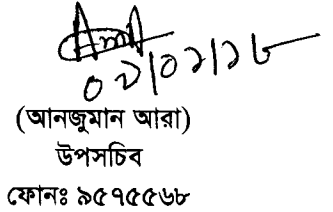 ০১/০১/১৮
(আনজুমান আরা)
উপসচিব
ফোনঃ ৯৫৭৫৫৬৮